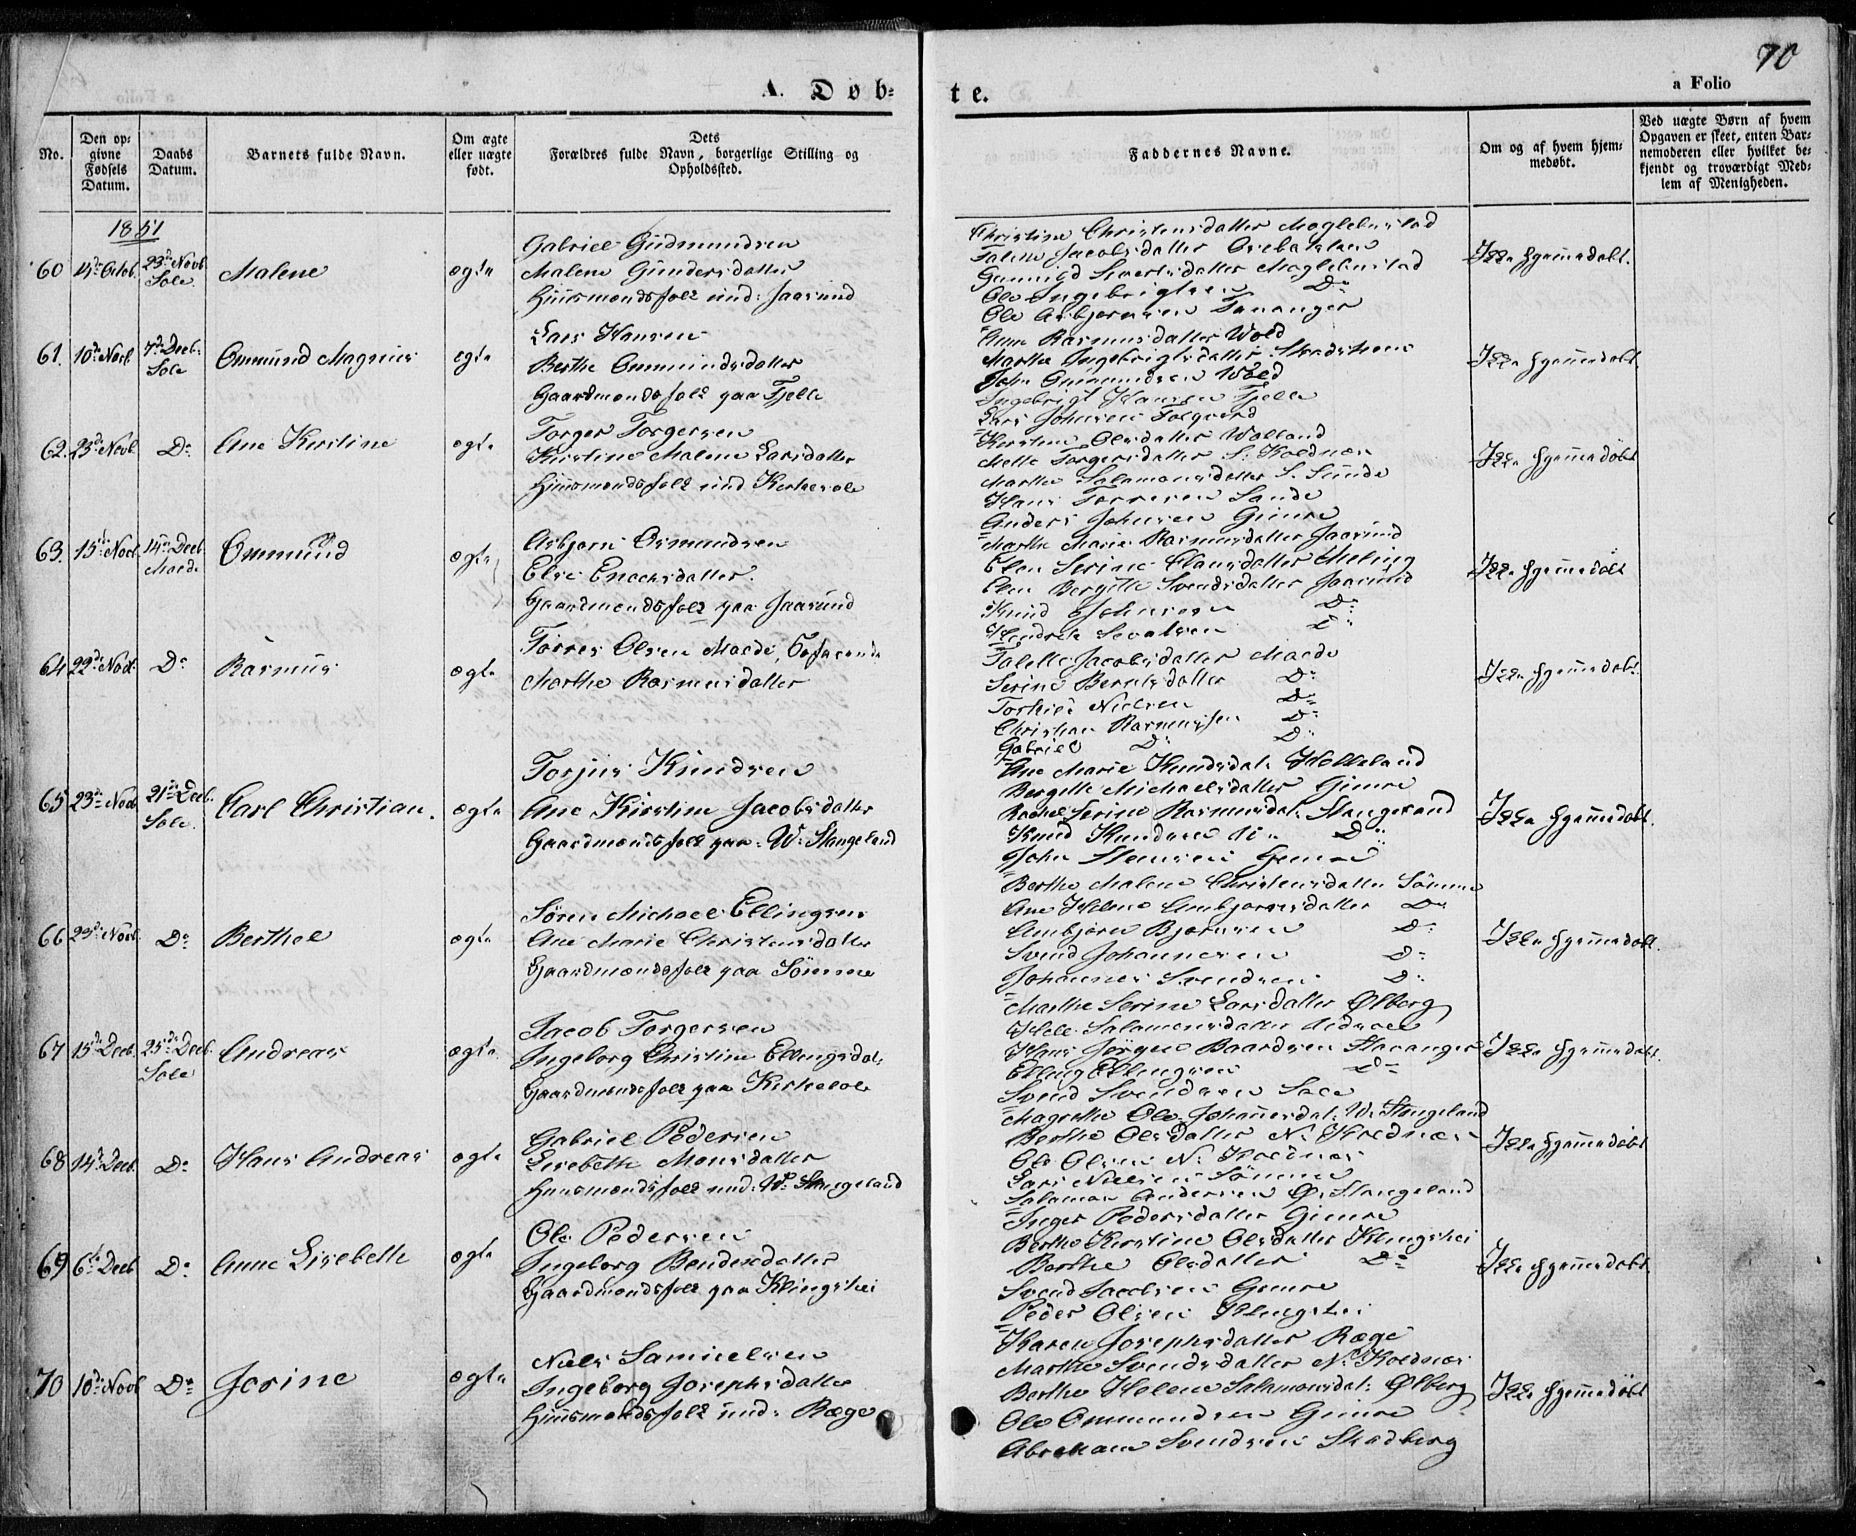 70
A. Døb-
te.
a Folio
No.
Den op-
givne
Fødsels
Datum.
Daabs
Datum.
Barnets fulde Navn.
Om ægte
eller uægte
født.
Dets
Forældres fulde Navn, borgerlige Stilling og
Opholdssted.
Faddernes Navne.
Om og af hvem hjem-
medøbt.
Ved uægte Børn af hvem
Opgaven er skeet, enten Bar-
nemoderen eller hvilket be-
kjendt og troværdigt Med-
lem af Menigheden.
1851
60 14de Octob. 23de Novb.
Sole
Malene
ægte
Gabriel Gudmundsen
Malene Gundersdatter
Huusmandsfolk und: Jaasund
Christine Christensdatter Maglebustad
Jacobsdatter
Gunnild Sivertsdatter Maglebustad
Ole Ingebrigtsen Do
Ole Asbjørnsen Tananger
Ikke hjemmedøbt.
61. 10de Novb. 7de Decb.
Sole
Ommund Magnus
ægte
Lars Hansen
Berthe Ommundsdatter
Gaardmandsfolk paa Tjelte
Anne Rasmusdatter Wold
Marthe Ingebrigtsdatter
John Ommundsen Wold
Ingebrigt Hansen Tjelte
Lars Johnsen
Ikke hjemmedøbt.
62. 23de Novb. Do
Ane Kirstine
ægte
Torger Torgersen
Kirstine Malene Larsdatter
Huusmandsfolk und Kirkesole
Kirstine Olsdatter
Mette Torgersdatter S. Koldnæs
Marthe Salamonsdatter S. Sunde
Hans Torresen Sande
Anders Johnsen Gimre
Ikke hjemmedøbt
63. 15de Novb. 14de Decb.
Malde
Ommund
ægte
Asbjørn Osmundsen
Else Enochsdatter.
Gaardmandsfolk paa Jaasund
Marthe Marie Rasmusdatter Jaasund
Elen Serine Clausdatter Meling
Elen Bergitte Svendsdatter Jaasund
Knud Johnsen Do
Hendrik Do
Ikke hjemmedøbt
64 22de Novb. Do
Rasmus
ægte
Torres Olsen Malde,
Marthe Rasmusdatter
Jacobsdatter Malde
Serine Berntsdatter Do
Torkild Nielsen Do
Christian Rasmussen Do
Gabriel Do Do
Ikke hjemmedøbt.
65 23de Novb. 21de Decb.
Sole.
Carl Christian.
ægte
Torjus Knudsen
Ane Kirstine Jacobsdatter
Gaardmandsfolk paa W: Stangeland
Ane Marie Knudsdat. Helleland
Bergitte Michaelsdatter Gimre
Rachel Serine Rasmusdat. Stangeland
Knud Knudsen Do
John Gimre
Ikke hjemmedøbt.
66 23de Novb. Do
Berthel
ægte
Søren Michael Ellingsen
Ane Marie Christensdatter
Gaardmandsfolk paa Sømme
Berthe Malene Christensdatter Sømme
Ane Helene Ambjørnsdatter Do
Ambjørn Bjørnsen Do
Svend Johannesen Do
Johannes Svendsen Do
Ikke hjemmedøbt.
67 15de Decb. 25de Decb.
Sole
Andreas
ægte.
Jacob Torgersen
Ingeborg Christine Ellingsdat.
Gaardmandsfolk paa Kirkesole
Marthe Serine Larsdatter Ølberg
Salamonsdatter
Hans Jørgen Baardsen Stavanger
Elling Ellingsen Do
Svend Svendsen Sole
Ikke hjemmedøbt.
68 14de Decb. Do
Hans Andreas
ægte
Gabriel Pedersen
Lisebeth Monsdatter
Huusmandsfolk und: W: Stangeland
Magrethe Ole Johannesdat. W. Stangeland
Berthe Olsdatter N. Koldnæs
Ole Olsen N. Koldnæs
Lars Nielsen Sømme
Salamon Andersen Ø. Stangeland
Ikke hjemmedøbt
69 6te Decb. Do
Anne Lisebeth
ægte
Ole Pedersen
Ingeborg Bendixdatter
Gaardmandsfolk paa Klingshei
Inger Pedersdatter Gimre
Berthe Kirstine Olsdatter Klingshei
Berthe Olsdatter Do
Svend Jacobsen Gimre
Peder Olsen Klingshei
Ikke hjemmedøbt.
70 10de Novb Do
Josine
ægte
Niels Samuelsen
Ingeborg Josephsdatter
Huusmandsfolk und: Ræge
Karen Josephsdatter Ræge
Marthe Svendsdatter N. Koldnæs
Berthe Helene Salamonsdat. Ølberg
Ole Ommundsen Gimre
Abraham Svendsen Skadberg
Ikke hjemmedøbt